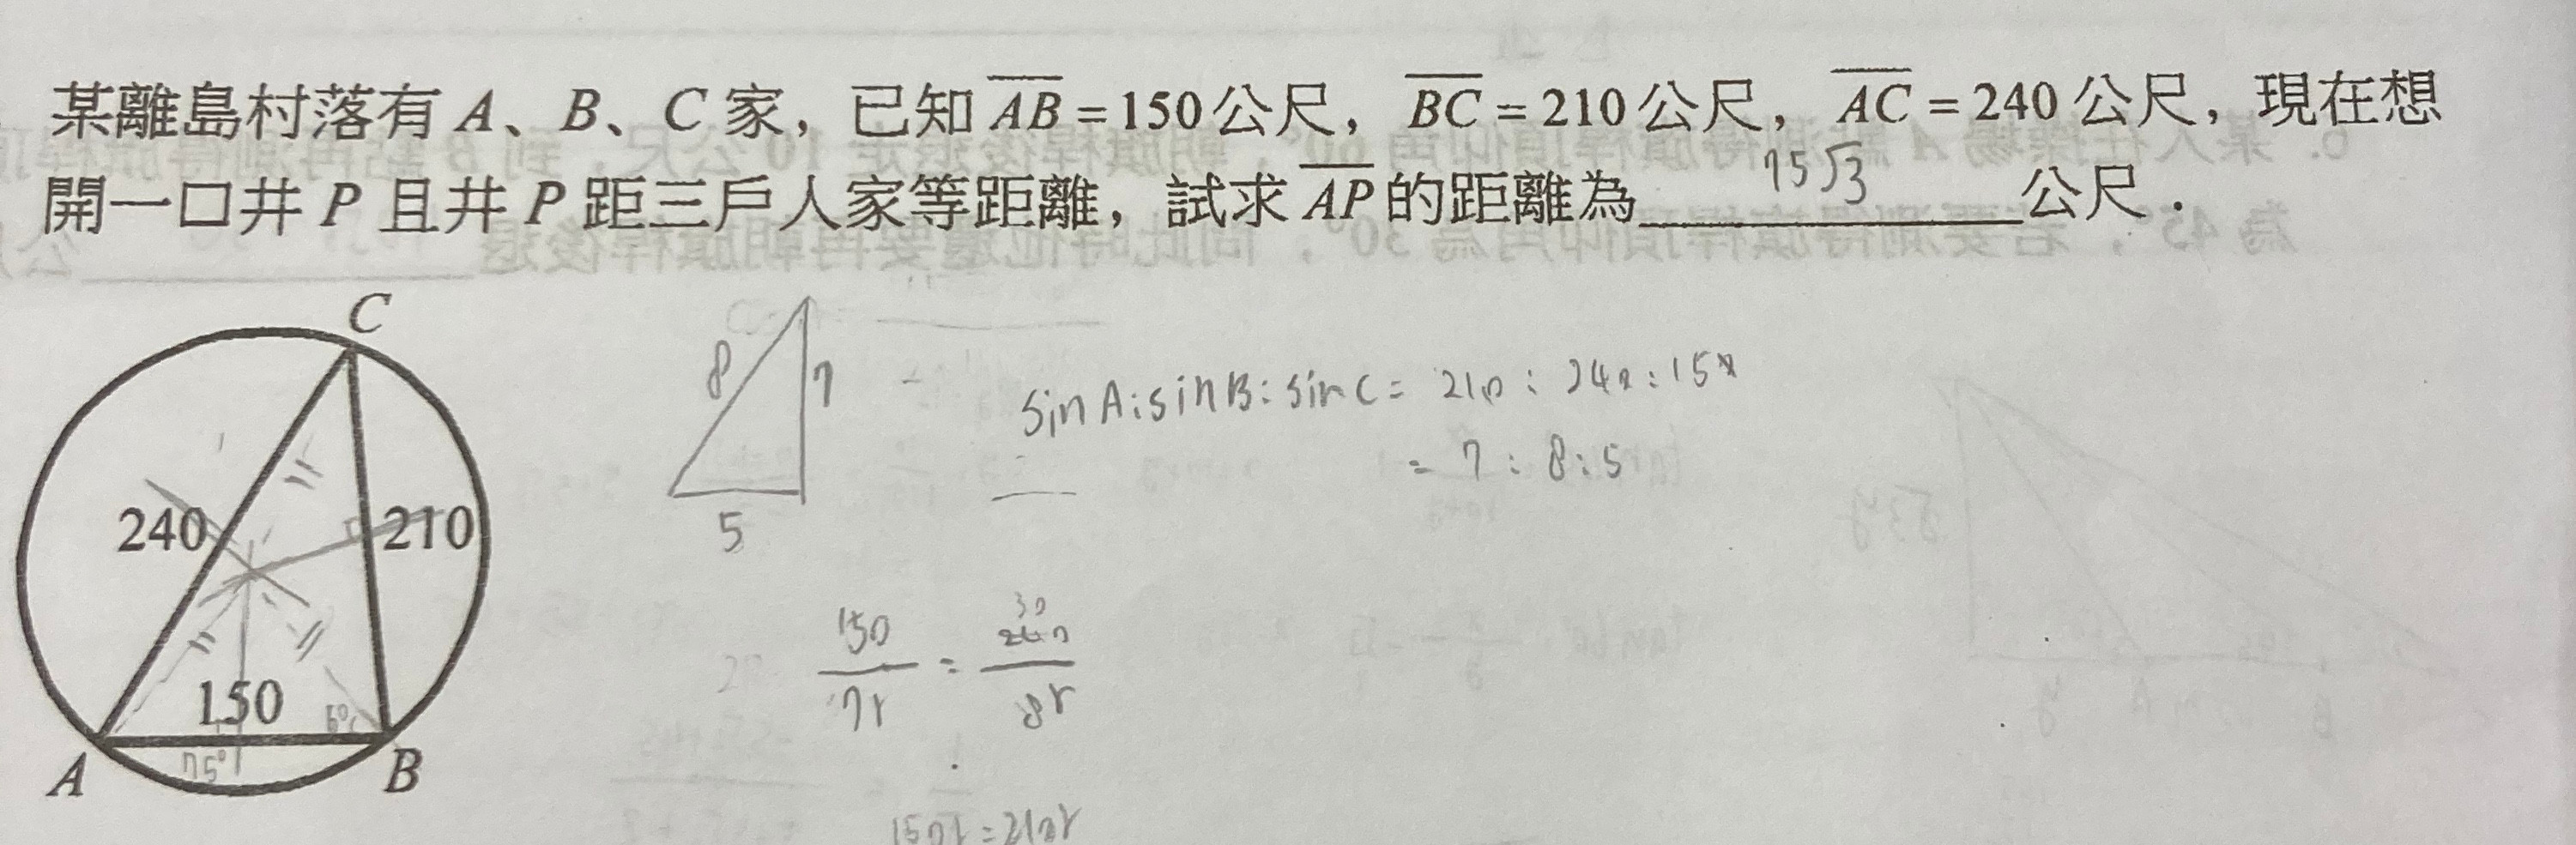 某離島村落有 A、B、C 家，已知 AB = 150 公尺，BC = 210 公尺，AC = 240 公尺，現在想
開一口井 P 且井 P 距三戶人家等距離，試求 AP 的距離為 75√3 公尺．
C
8
7
5
sin A : sin B : sin C = 210 : 240 : 150
= 7 : 8 : 5
240
210
150
A
B
75
150/7r = 240/8r
30
150r = 210r